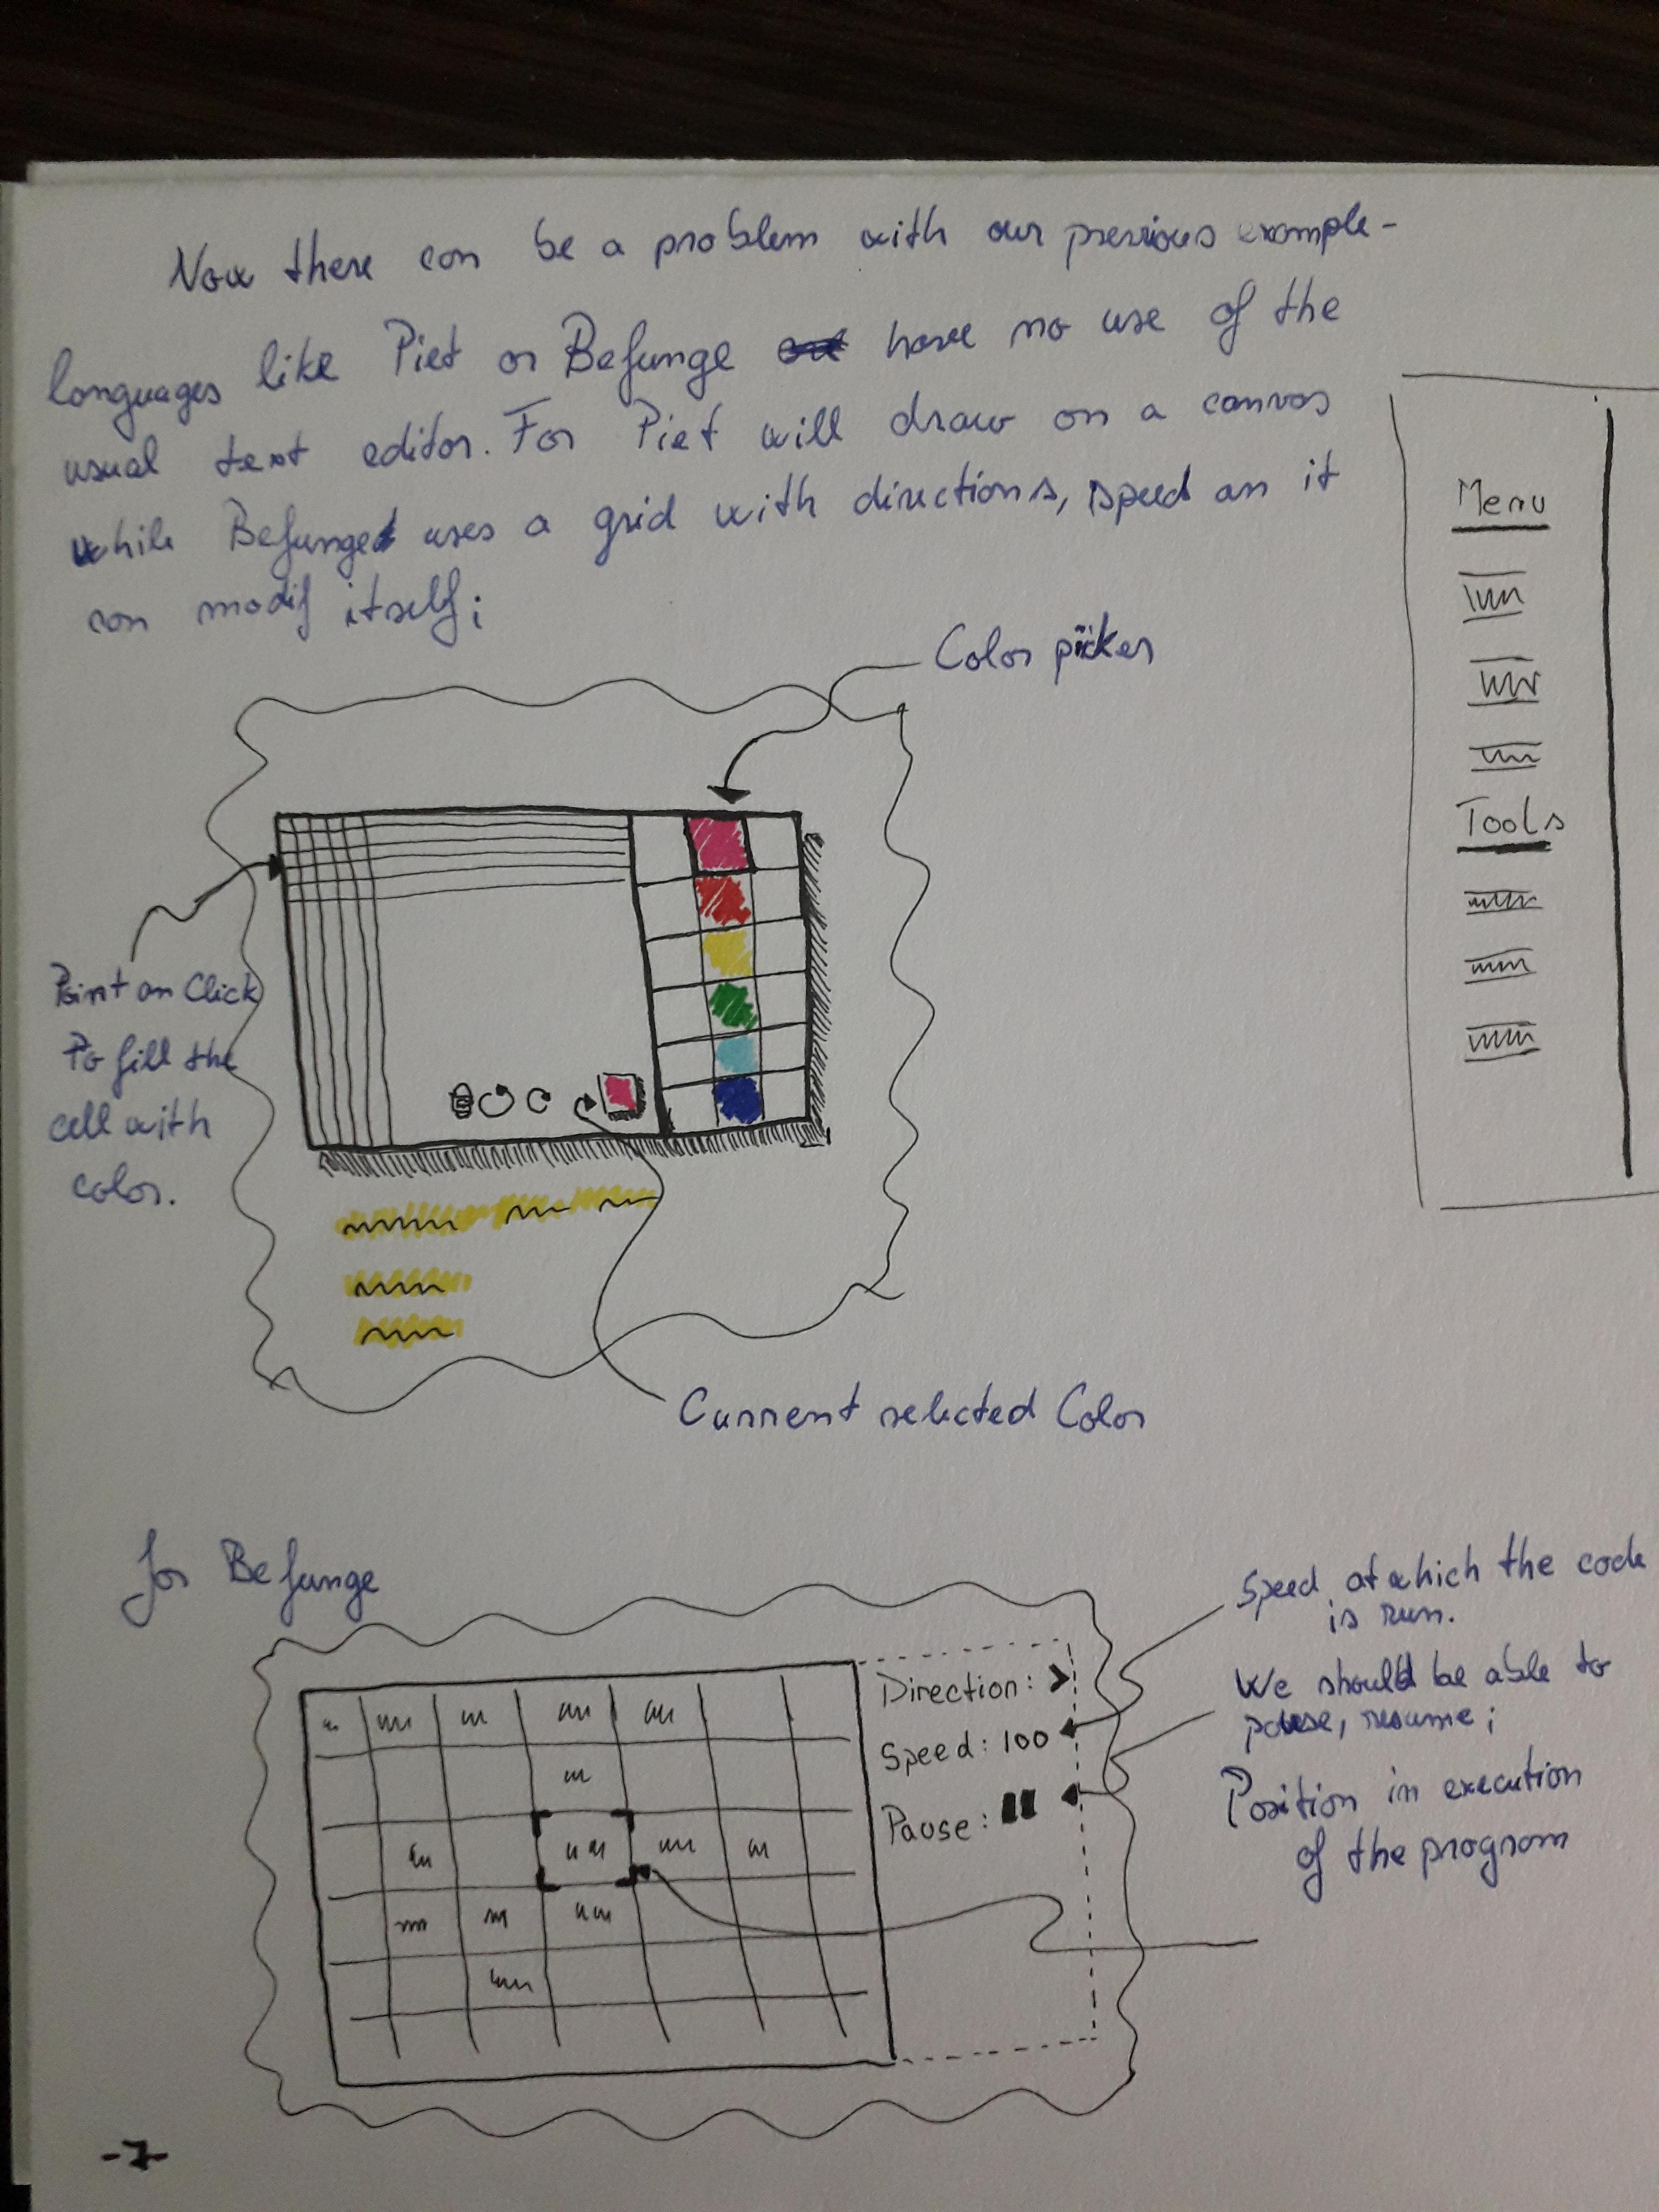 Now there can be a problem with our previous example-
languages like Piet or Befunge have no use of the
usual text editor. For Piet will draw on a canvas
while Befunge uses a grid with directions, speed an it
can modif itself;
Color picker
Point an Click
To fill the
cell with
color.
Current selected Color
Menu
Tools
for Befunge
Direction: >
Speed: 100
Pause:
Speed at which the code
is run.
We should be able to
pause, resume;
Position in execution
of the program
-7-